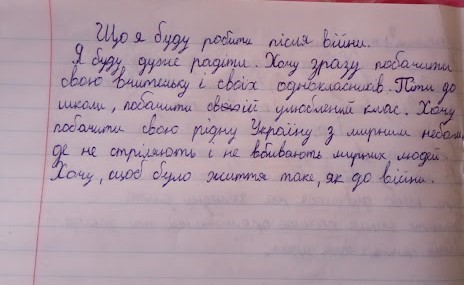 Що я буду робити після війни.
Я буду дуже радіти. Хочу зразу побачити
свою вчительку і своїх однокласників. Піти до
школи, побачити свій улюблений клас. Хочу
побачити свою рідну Україну з мирним небом,
де не стріляють і не вбивають мирних людей
Хочу, щоб було життя таке, як до війни.